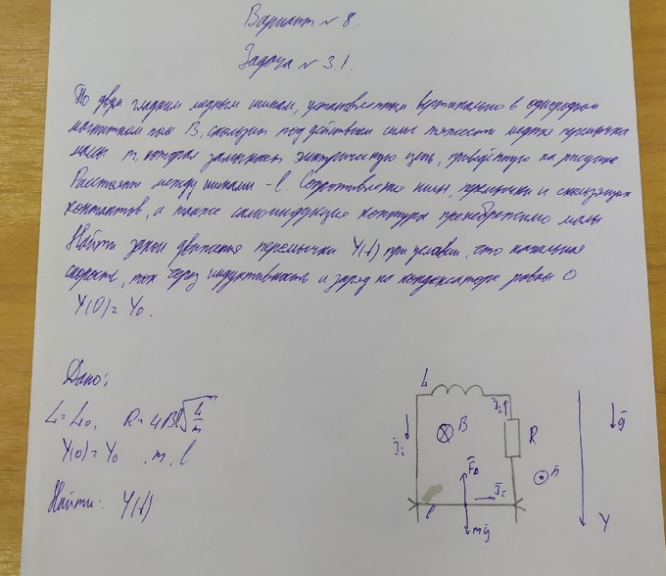 Вариант № 8.
Задача № 3.1.
По двум гладким медным шинам, установленным вертикально в однородном
магнитном поле B, скользит под действием силы тяжести медная перемычка
массы m, которая замыкает электрическую цепь, приведённую на рисунке
Расстояние между шинами - l. Сопротивление шин, перемычки и скользящих
контактов, а также самоиндукция контура пренебрежимо малы
Найти закон движения перемычки Y(t) при условии, что начальная
скорость, ток через индуктивность и заряд на конденсаторе равны 0
Y(0) = Y₀.
Дано:
L = L₀, R = 4Bl√(L/m)
Y(0) = Y₀ , m, l
Найти: Y(t)
L
B
R
l
mg
n
g
Y